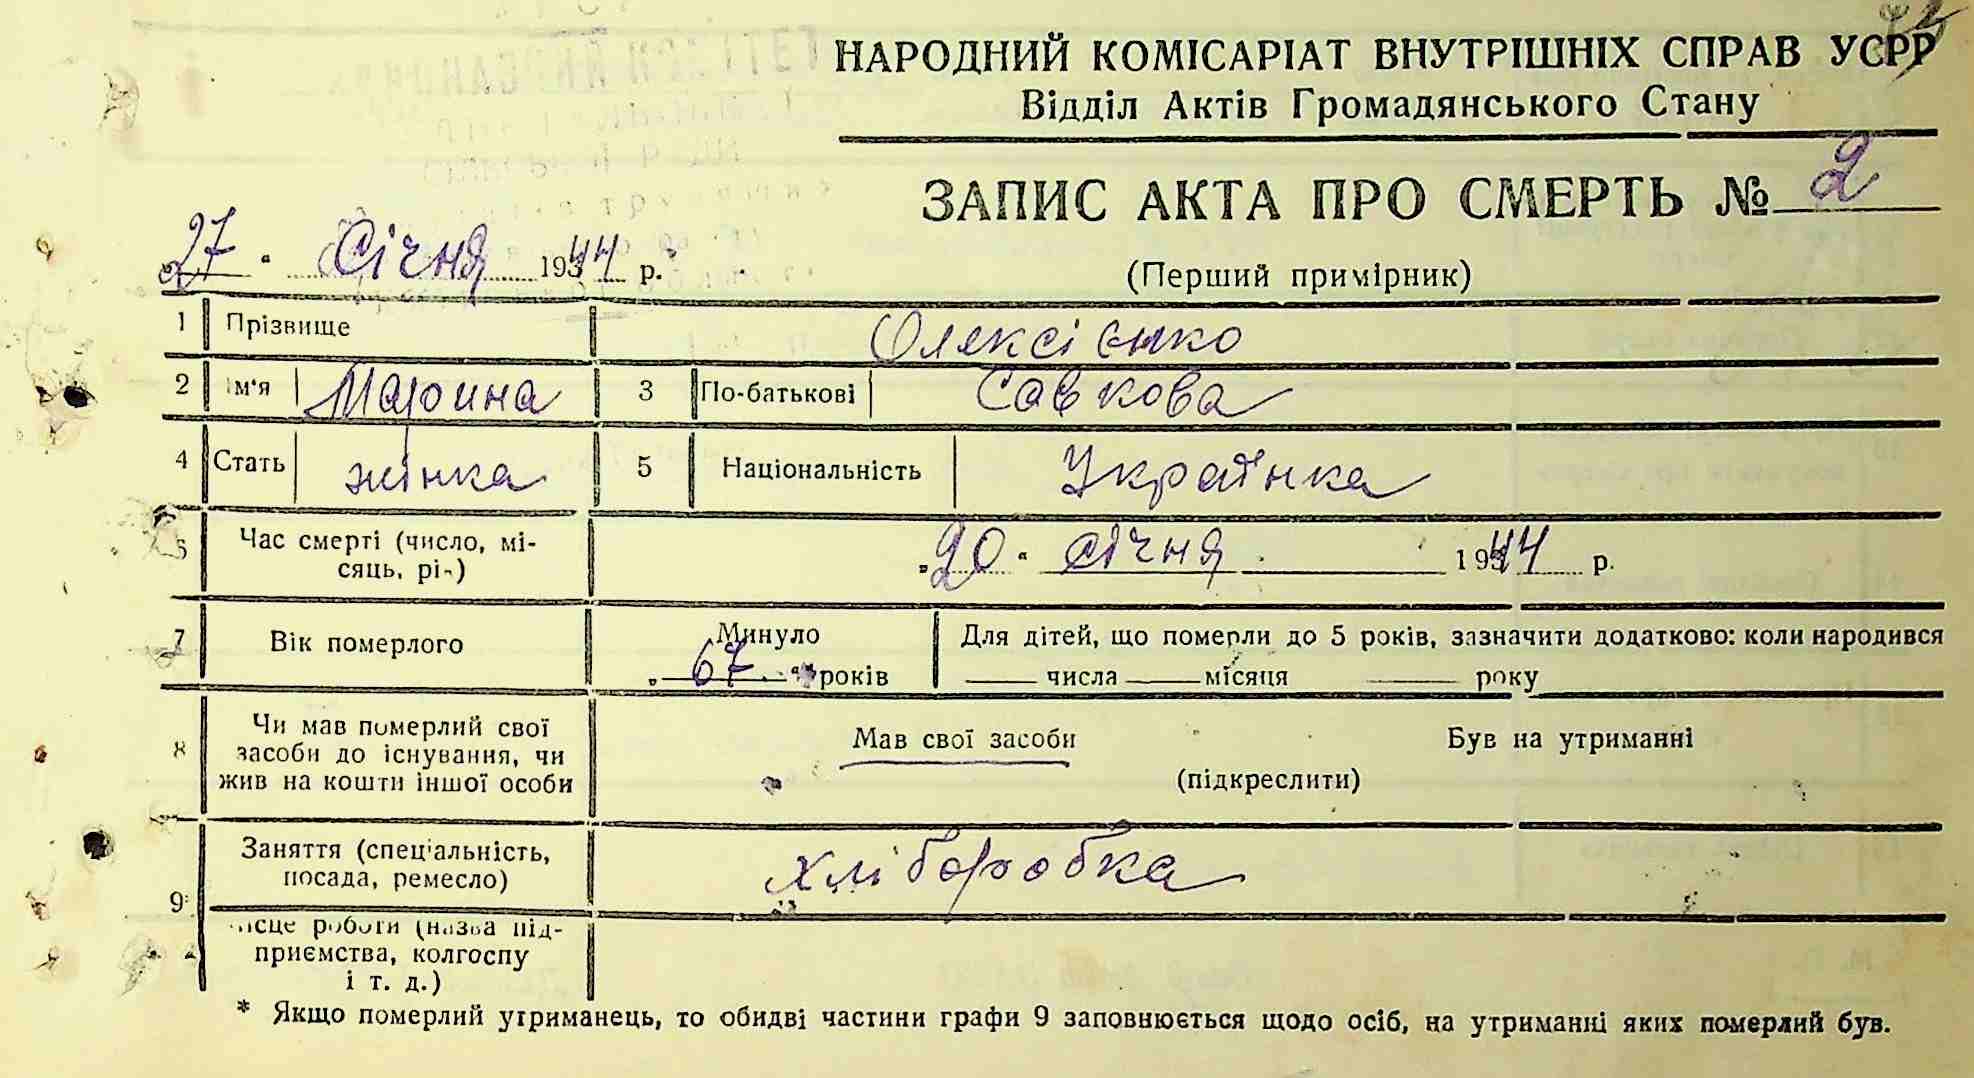 НАРОДНИЙ КОМІСАРІАТ ВНУТРІШНІХ СПРАВ УСРР
Відділ Актів Громадянського Стану
ЗАПИС АКТА ПРО СМЕРТЬ № 2
27 " Січня 1944 р.
(Перший примірник)
1 Прізвище Олексієнко
2 Ім'я Марина 3 По-батькові Савкова
4 Стать жінка 5 Національність Українка
6 Час смерті (число, мі-
сяць, рік) „20" січня 1944 р.
7 Вік померлого Минуло „67" років
Для дітей, що померли до 5 років, зазначити додатково: коли народився
числа місяця року
8 Чи мав померлий свої
засоби до існування, чи
жив на кошти іншої особи
Мав свої засоби Був на утриманні
(підкреслити)
9 Заняття (спеціальність,
посада, ремесло) хліборобка
Місце роботи (назва під-
приємства, колгоспу
і т. д.)
* Якщо померлий утриманець, то обидві частини графи 9 заповнюється щодо осіб, на утриманні яких померлий був.